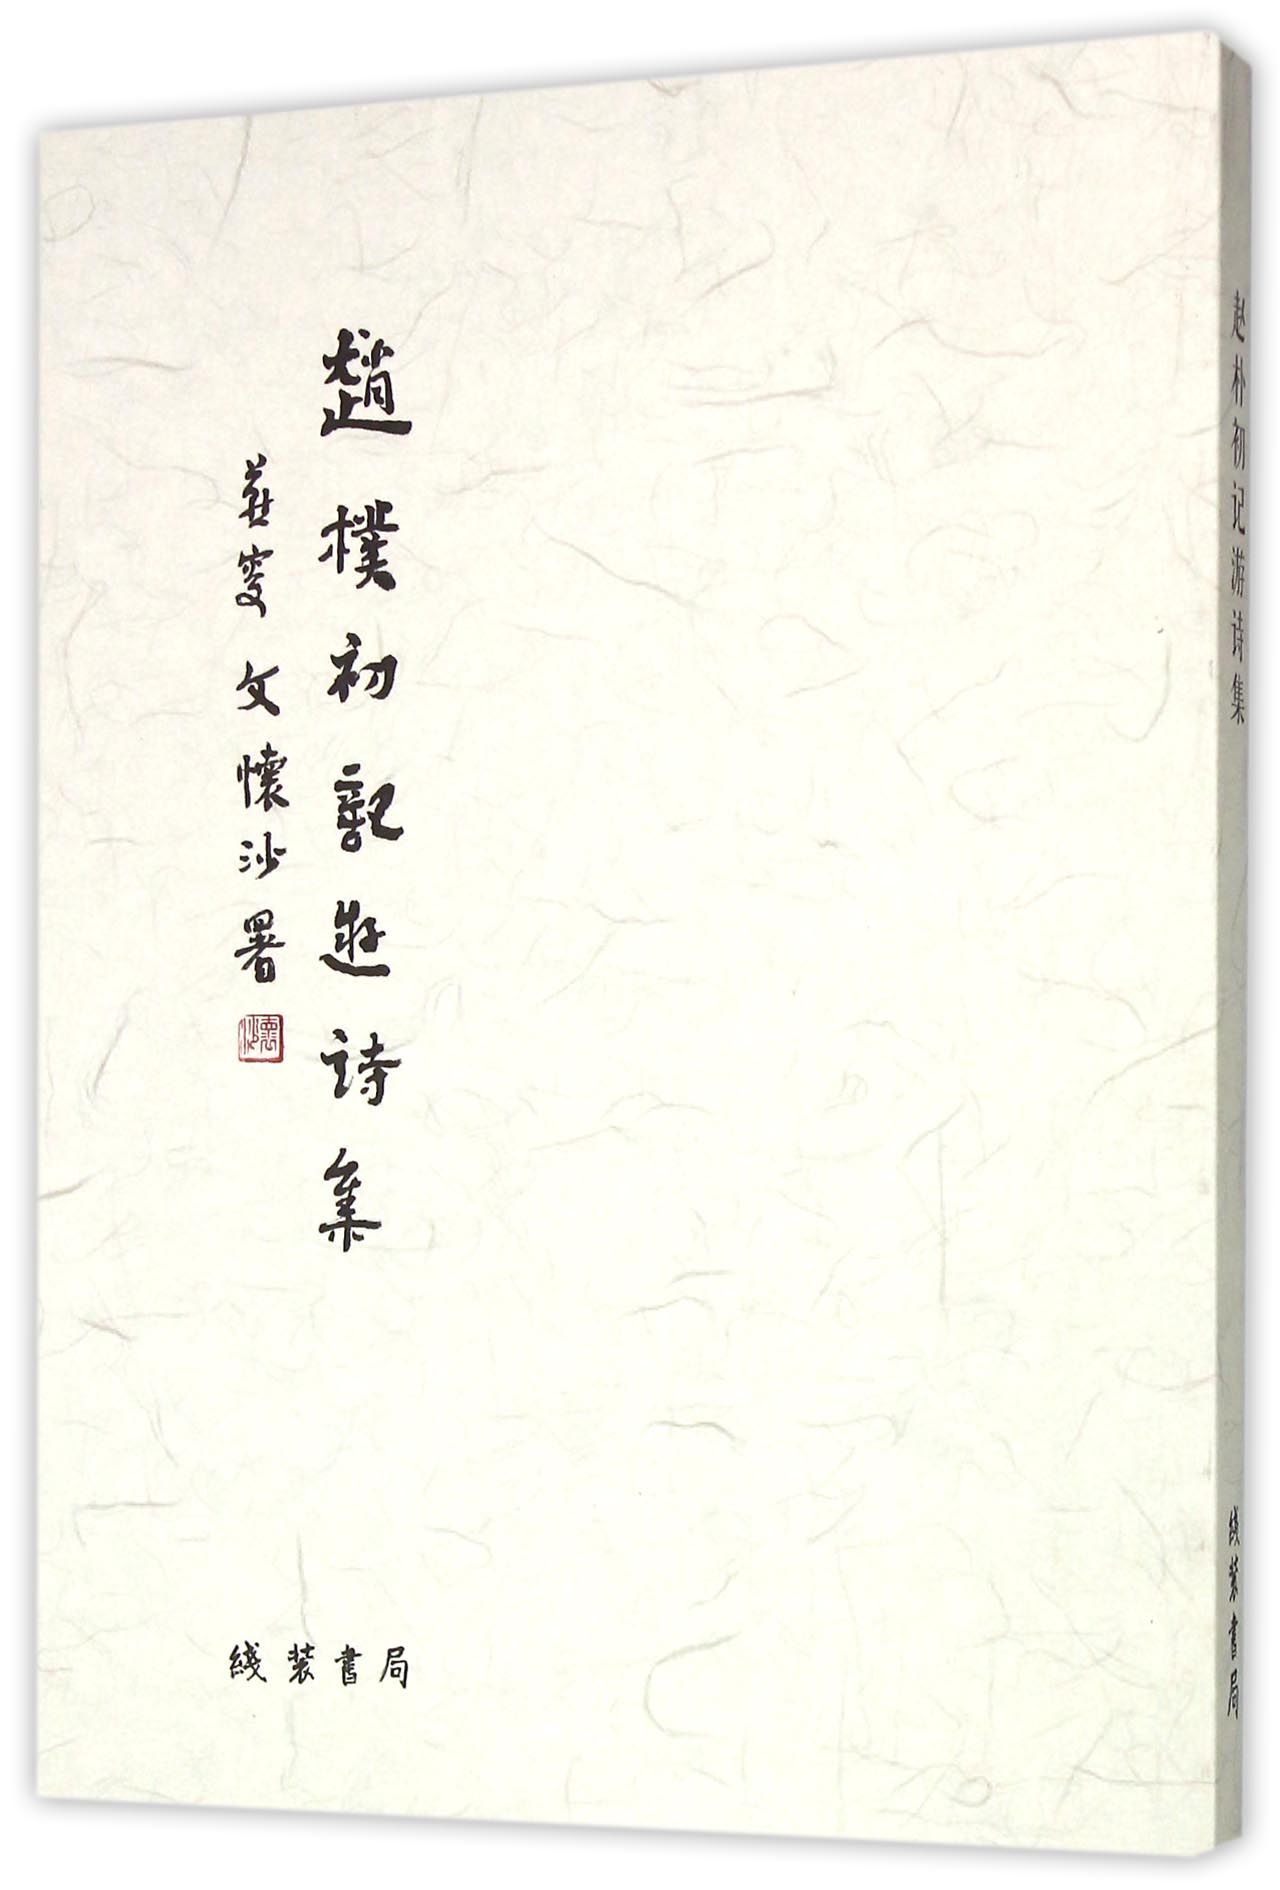 趙樸初記遊詩集
燕叟 文懷沙署
懷沙
綫装書局
赵朴初记游诗集
綫装書局